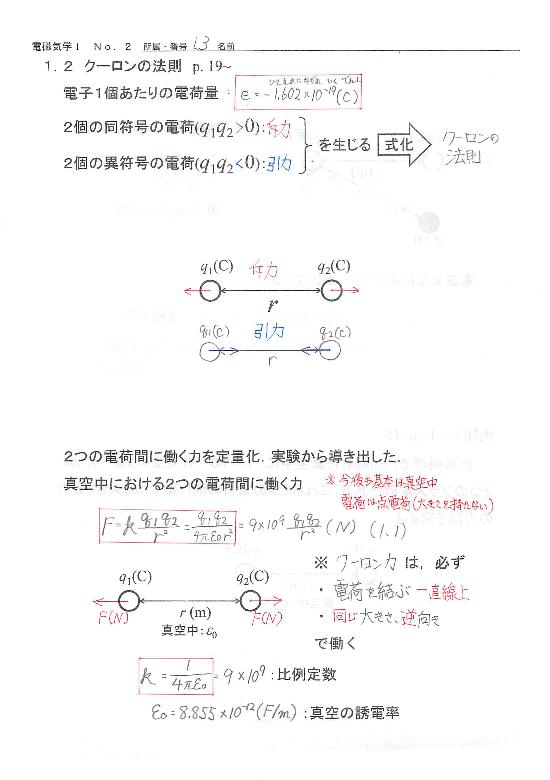 電磁気学Ⅰ No. 2 所属・番号 13 名前
1.2 クーロンの法則 p.19~
電子1個あたりの電荷量: e = -1.602×10⁻¹⁹(C)
2個の同符号の電荷(q₁q₂>0):斥力
2個の異符号の電荷(q₁q₂<0):引力
を生じる 式化 クーロンの法則
q₁(C) 斥力 q₂(C)
r
q₁(C) 引力 q₂(C)
r
2つの電荷間に働く力を定量化.実験から導き出した.
真空中における2つの電荷間に働く力
※今後も基本は真空中
電荷は点電荷(大きさを持たない)
F = k q₁q₂/r² = q₁q₂/4πε₀r² = 9×10⁹ q₁q₂/r² (N) (1.1)
※ クーロン力 は,必ず
・電荷を結ぶ 一直線上
・同じ大きさ、逆向き
で働く
q₁(C) q₂(C)
F(N) r (m) F(N)
真空中:ε₀
k = 1/4πε₀ = 9×10⁹ :比例定数
ε₀ = 8.855×10⁻¹²(F/m) :真空の誘電率